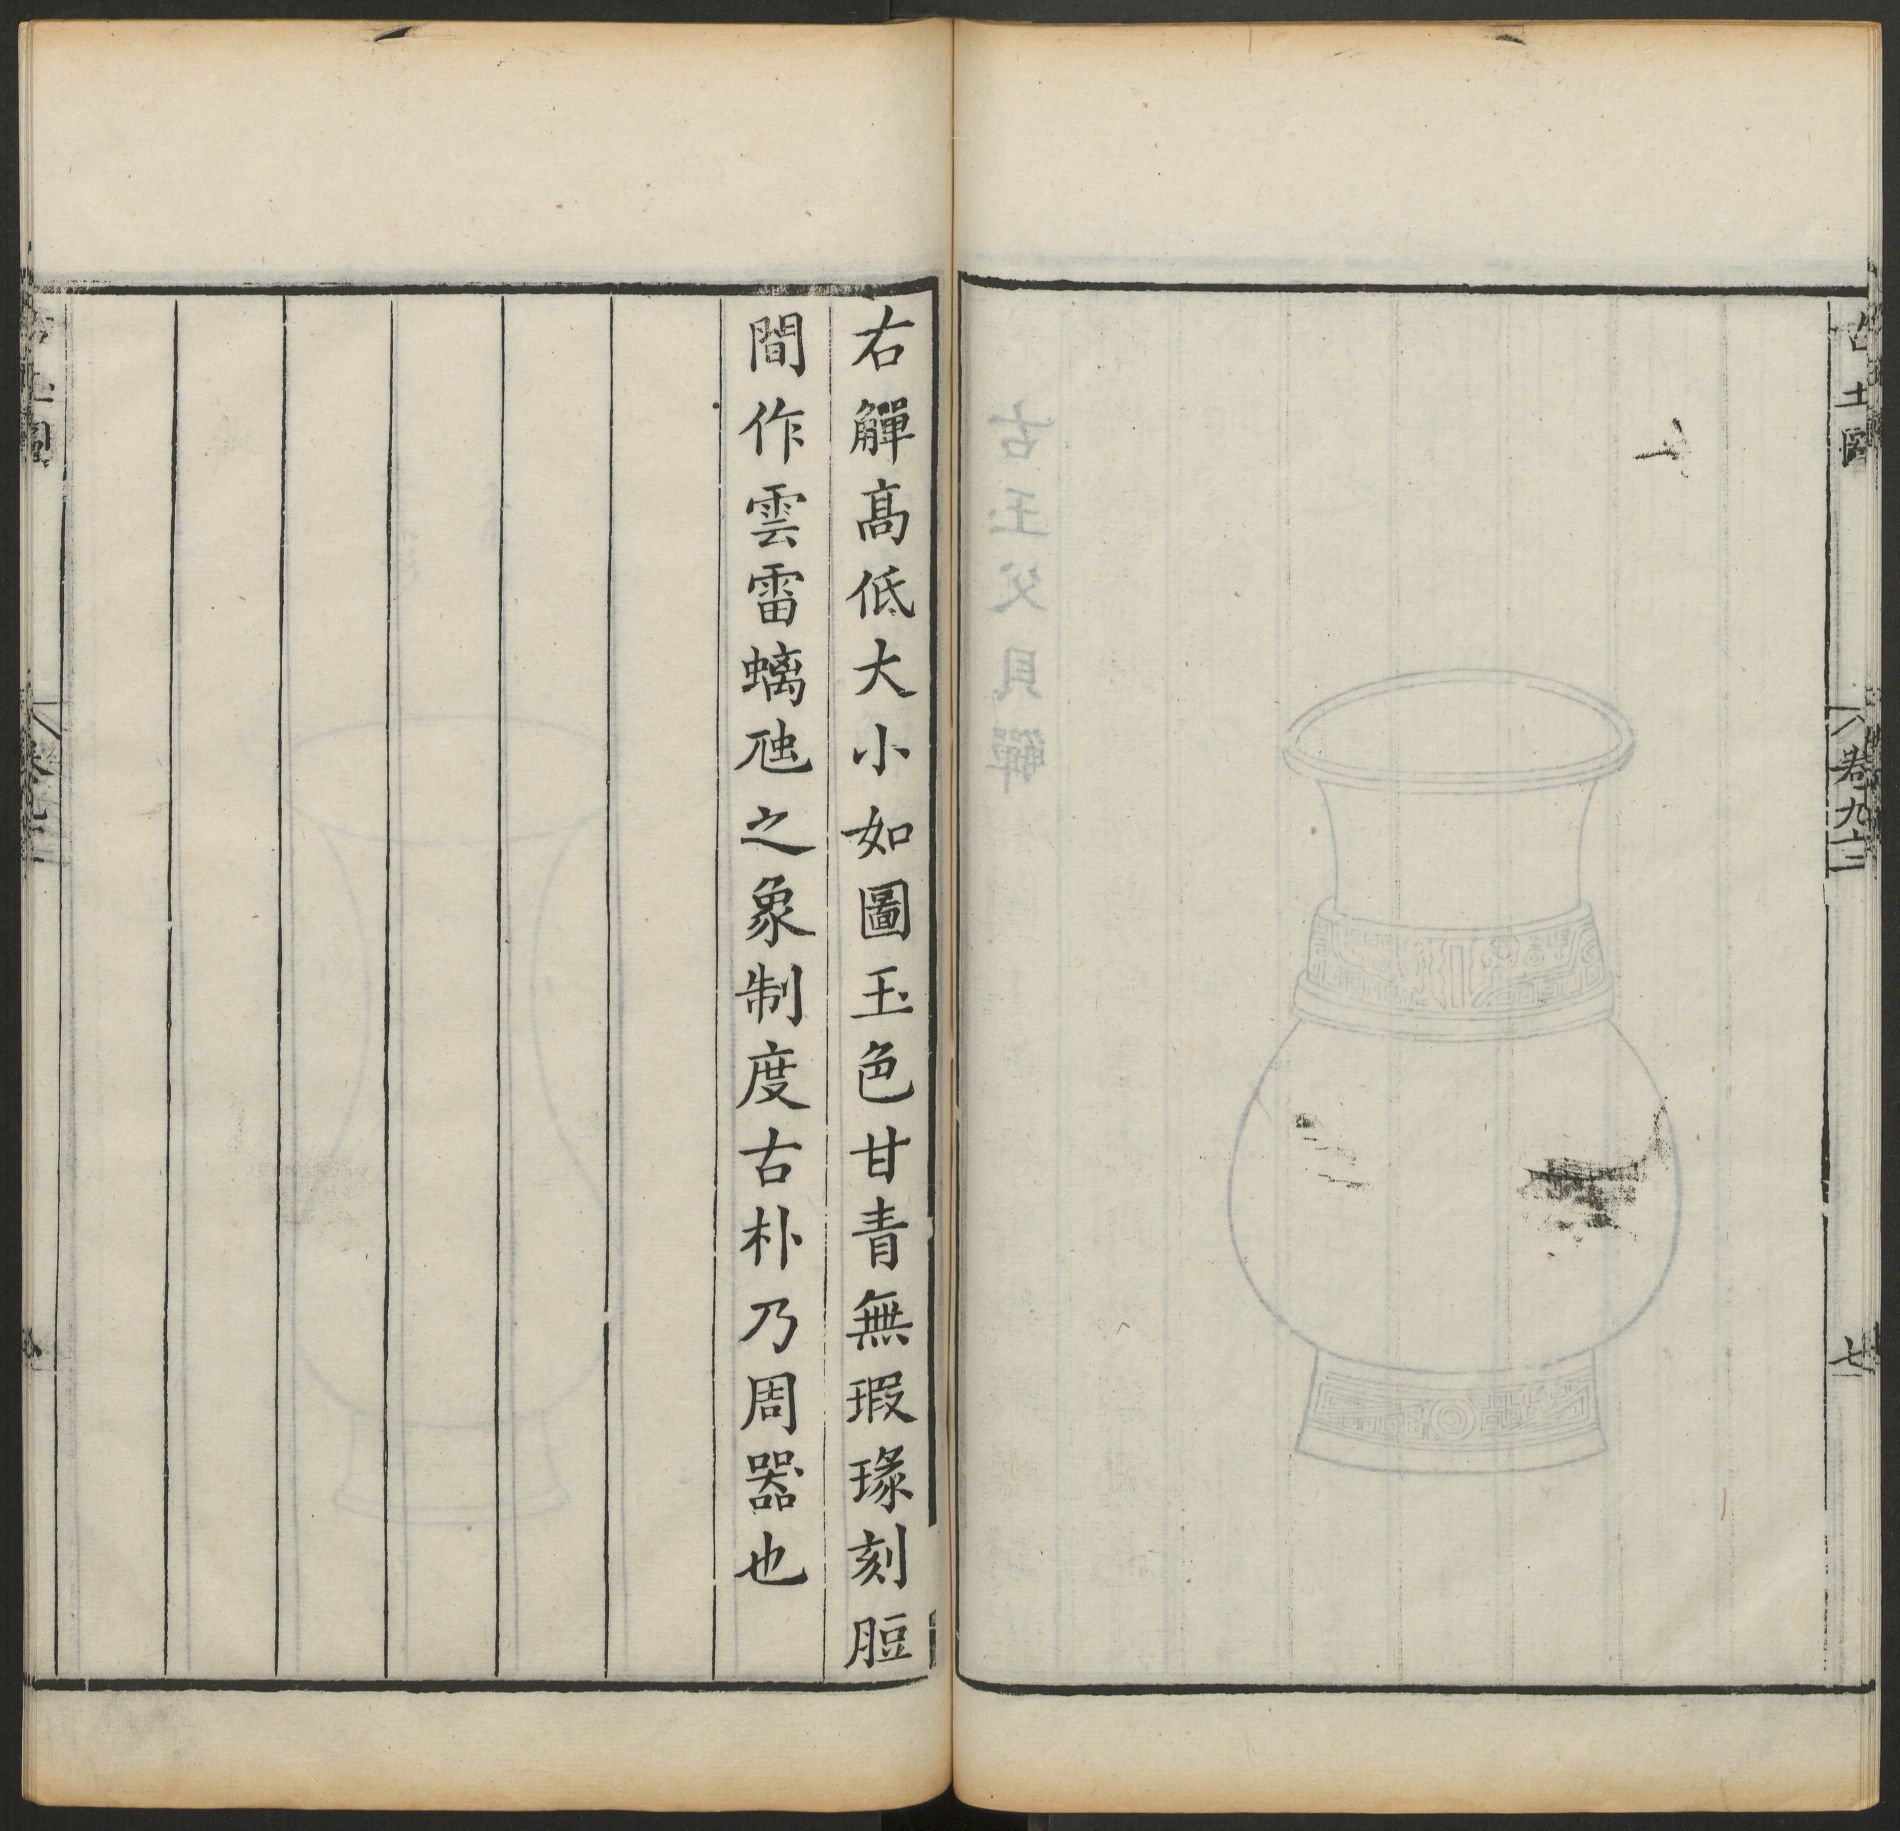 古玉圖
卷九十三
七
古玉父貝觶
右觶髙低大小如圖玉色甘青無瑕瑑刻脰
間作雲雷螭虺之象制度古朴乃周器也